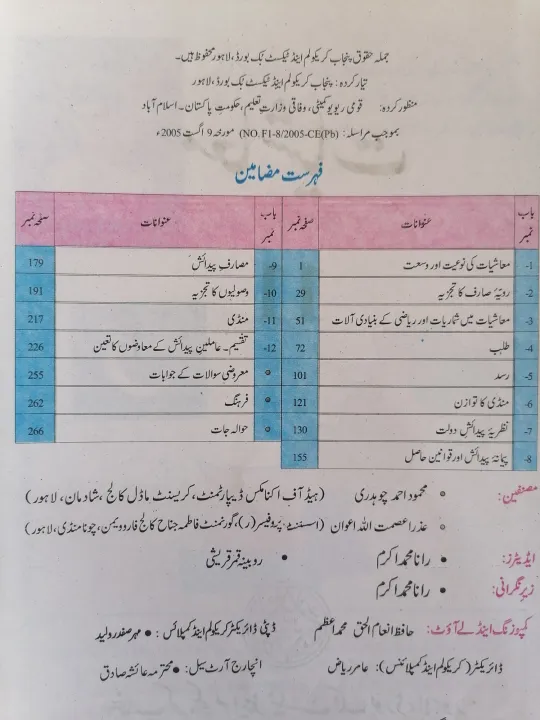 جملہ حقوق پنجاب کریکولم اینڈ ٹیکسٹ بک بورڈ، لاہور محفوظ ہیں۔
تیار کردہ: پنجاب کریکولم اینڈ ٹیکسٹ بک بورڈ، لاہور
منظور کردہ: قومی ریویو کمیٹی، وفاقی وزارتِ تعلیم، حکومتِ پاکستان۔ اسلام آباد
بموجب مراسلہ: (NO.F1-8/2005-CE(Pb) مورخہ 9 اگست 2005ء
فہرست مضامین
باب نمبر عنوانات صفحہ نمبر
1- معاشیات کی نوعیت اور وسعت 1
2- رویۂ صارف کا تجزیہ 29
3- معاشیات میں شماریات اور ریاضی کے بنیادی آلات 51
4- طلب 72
5- رسد 101
6- منڈی کا توازن 121
7- نظریۂ پیدائشِ دولت 130
8- پیمانۂ پیدائش اور قوانین حاصل 155
باب نمبر عنوانات صفحہ نمبر
9- مصارفِ پیدائش 179
10- وصولیوں کا تجزیہ 191
11- منڈی 217
12- تقسیم۔ عاملینِ پیدائش کے معاوضوں کا تعین 226
● معروضی سوالات کے جوابات 255
● فرہنگ 262
● حوالہ جات 266
مصنفین: ● محمود احمد چوہدری (ہیڈ آف اکنامکس ڈیپارٹمنٹ، کریسنٹ ماڈل کالج، شادمان، لاہور)
● عذرا عصمت اللہ اعوان (اسسٹنٹ پروفیسر (ر)، گورنمنٹ فاطمہ جناح کالج فار وویمن، چونا منڈی، لاہور)
ایڈیٹرز: ● رانا محمد اکرم ● روبینہ قمر قریشی
زیرِ نگرانی: ● رانا محمد اکرم
کمپوزنگ اینڈ لے آؤٹ: حافظ انعام الحق محمد اعظم ڈپٹی ڈائریکٹر کریکولم اینڈ کمپلائنس: ● مہر صفدر ولید
ڈائریکٹر (کریکولم اینڈ کمپلائنس): عامر ریاض انچارج آرٹ سیل: ● محترمہ عائشہ صادق